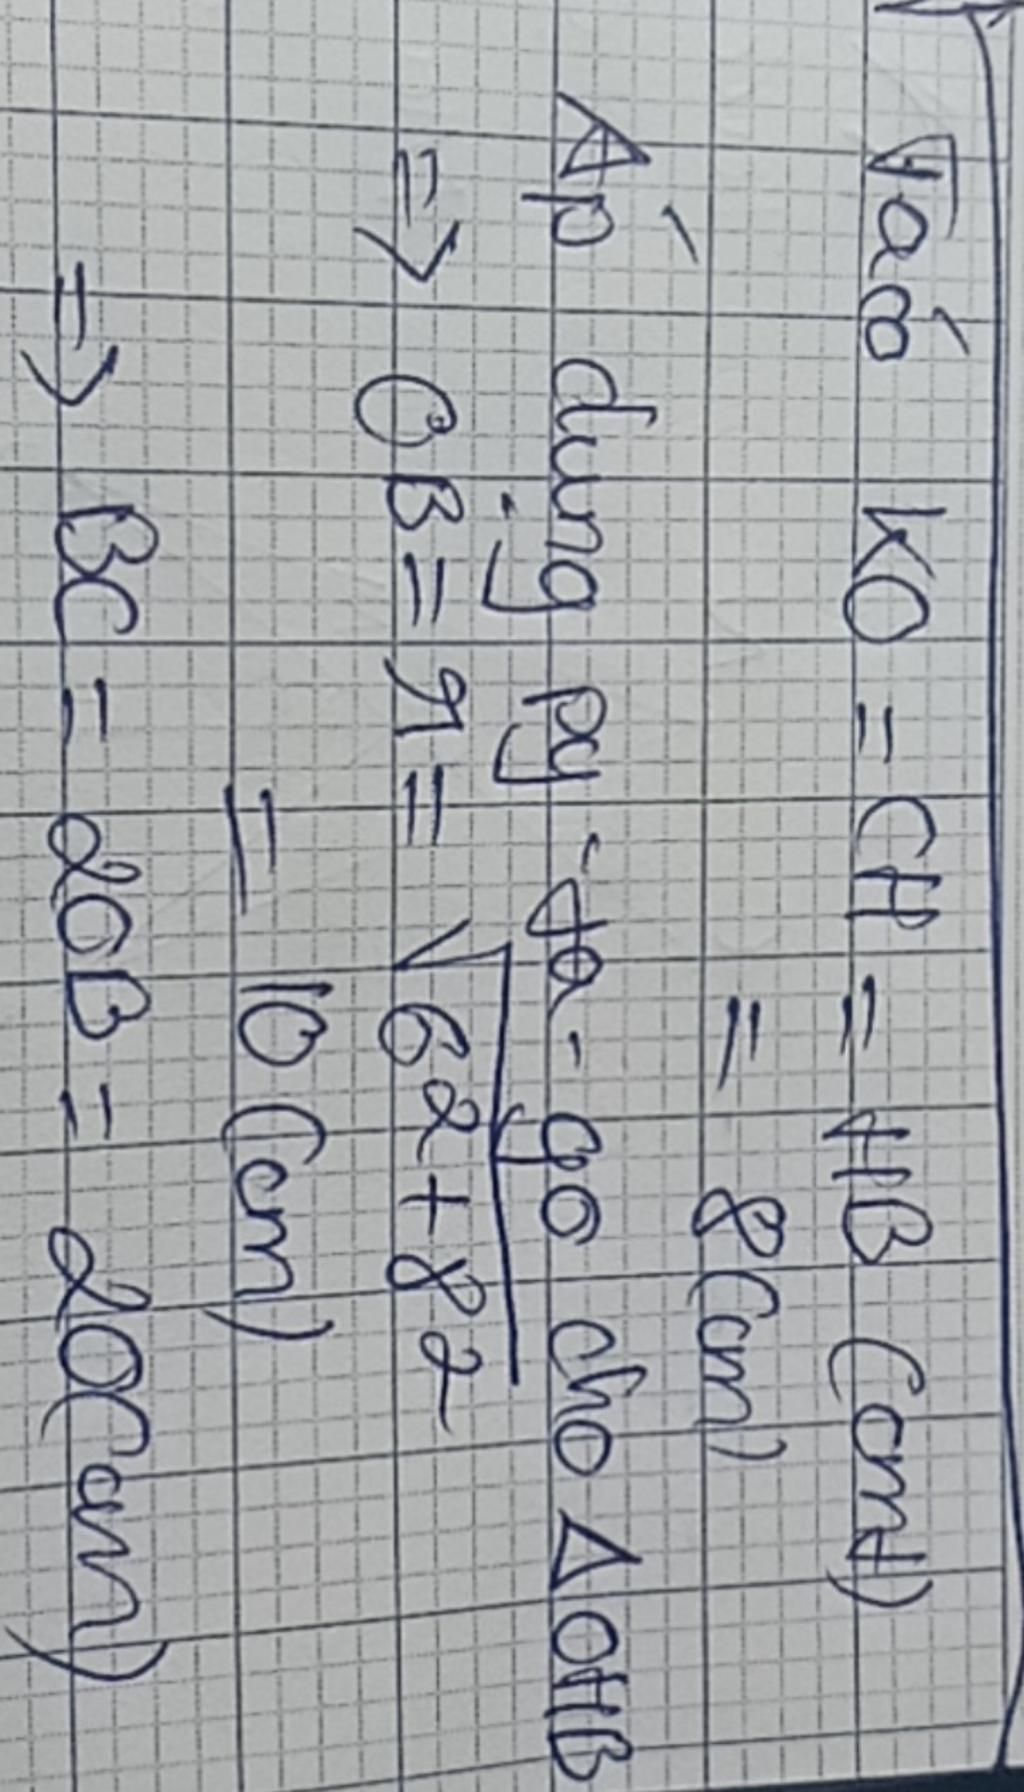 Ta có KO = CH = HB (cmt)
= 8 (cm)
Áp dụng py-ta-go cho Δ OHB
=> OB = r = √6² + 8²
= 10 (cm)
=> BC = 2OB = 20 (cm)